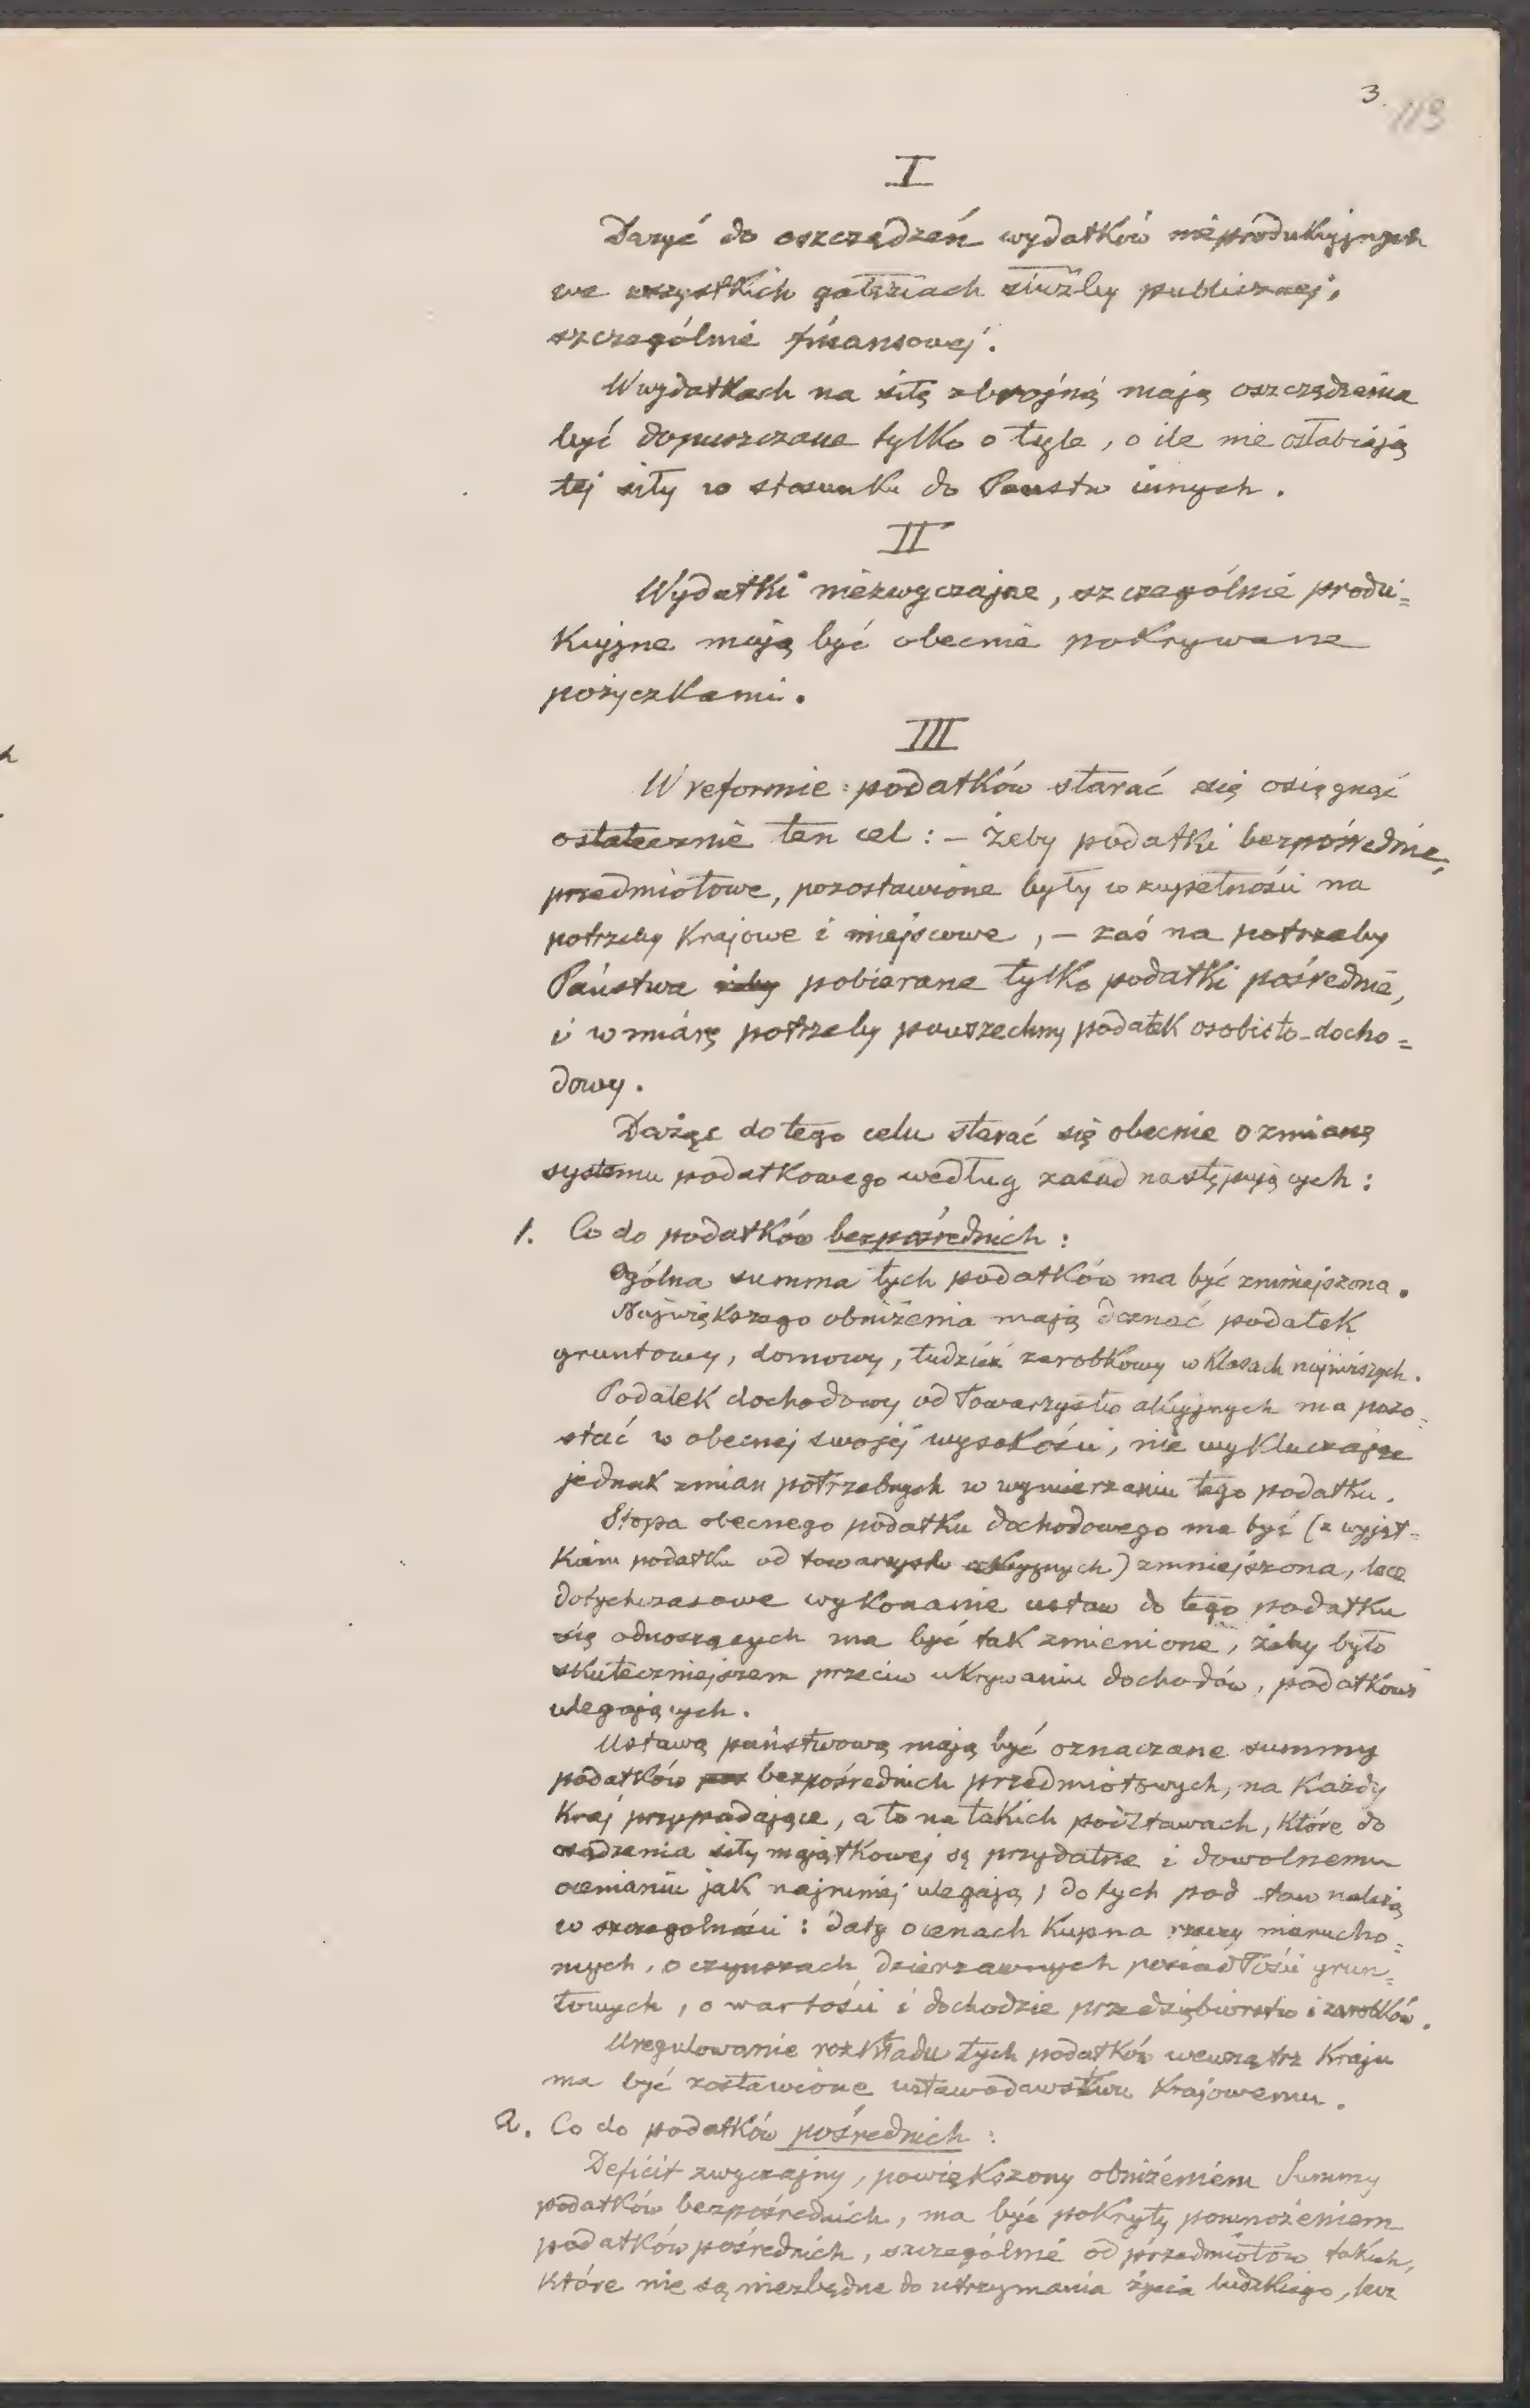 3.
113
I
Dążyć do oszczędzeń wydatków nieprodukcyjnych
we wszystkich gałęziach służby publicznej,
szczególnie finansowej.
W wydatkach na siłę zbrojną mają oszczędzenia
być dopuszczane tylko o tyle, o ile nie osłabiają
tej siły w stosunku do Państw innych.
II
Wydatki niezwyczajne, szczególnie produ=
kcyjne mają być obecnie pokrywane
pożyczkami.
III
W reformie podatków starać się osięgnąć
ostatecznie ten cel: – żeby podatki bezpośrednie,
przedmiotowe, pozostawione były w zupełności na
potrzeby Krajowe i miejscowe, – zaś na potrzeby
Państwa żeby pobierane tylko podatki pośrednie,
i w miarę potrzeby powszechny podatek osobisto-docho=
dowy.
Dążąc do tego celu starać się obecnie o zmianę
systemu podatkowego według zasad następujących:
1. Co do podatków bezpośrednich:
Ogólna summa tych podatków ma być zmniejszona.
Największego obniżenia mają doznać podatek
gruntowy, domowy, tudzież zarobkowy w klasach najniższych.
Podatek dochodowy od Towarzystw akcyjnych ma pozo=
stać w obecnej swojej wysokości, nie wykluczając
jednak zmian potrzebnych w wymierzaniu tego podatku.
Stopa obecnego podatku dochodowego ma być (z wyjąt=
kiem podatku od towarzystw akcyjnych) zmniejszona, lecz
dotychczasowe wykonanie ustaw do tego podatku
się odnoszących ma być tak zmienione, żeby było
skuteczniejszem przeciw ukrywaniu dochodów, podatkowi
ulegających.
Ustawą państwową mają być oznaczane summy
podatków bezpośrednich przedmiotowych, na Każdy
Kraj przypadające, a to na takich podstawach, które do
osądzenia siły majątkowej są przydatne i dowolnemu
ocenianiu jak najmniej ulegają; do tych podstaw należą
w szczególności: daty o cenach Kupna rzeczy nierucho=
mych, o czynszach dzierżawnych posiadłości grun=
towych, o wartości i dochodzie przedsiębiorstw i zarobków.
Uregulowanie rozkładu tych podatków wewnątrz Kraju
ma być zostawione ustawodawstwu Krajowemu.
2. Co do podatków pośrednich:
Deficit zwyczajny, powiększony obniżeniem Summy
podatków bezpośrednich, ma być pokryty pomnożeniem
podatków pośrednich, szczególnie od przedmiotów takich,
które nie są niezbędne do utrzymania życia ludzkiego, lecz